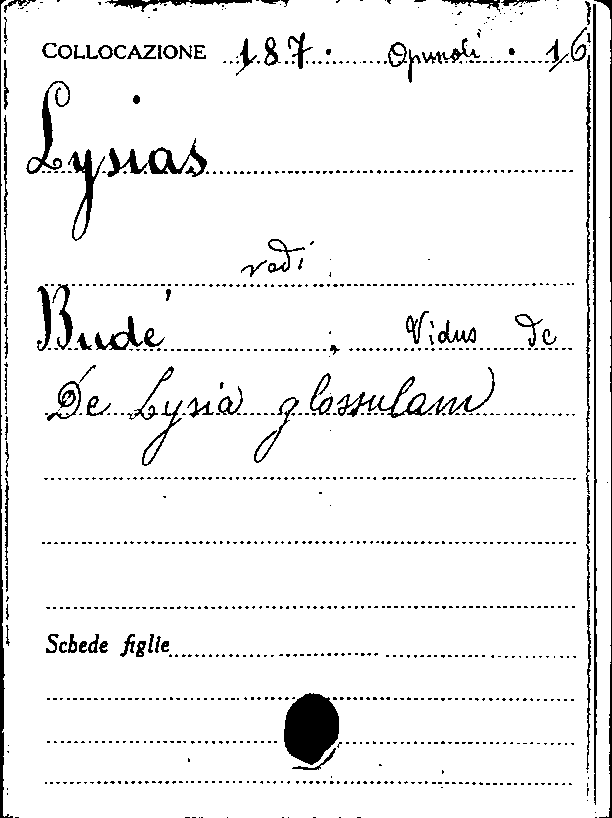 COLLOCAZIONE 187. Opuscoli. 16
Lysias
vedi
Budé, Vidus de
De Lysia glossulam
Schede figlie